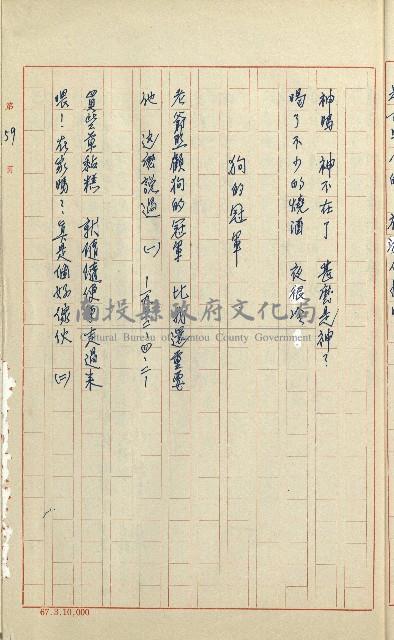 神喝 神不在了 甚麼是神？
喝了不少的燒酒 夜很冷。
狗的冠軍
老爺照顧狗的冠軍 比孫還重要
他 这麽說過 (一) 一九三一・四・二一
買些草黏糕 就隨隨便便 走過來
喂！在家嗎？真是個好傢伙 (二)
第59頁
南投縣政府文化局
Cultural Bureau of Nantou County Government
67.3.10,000